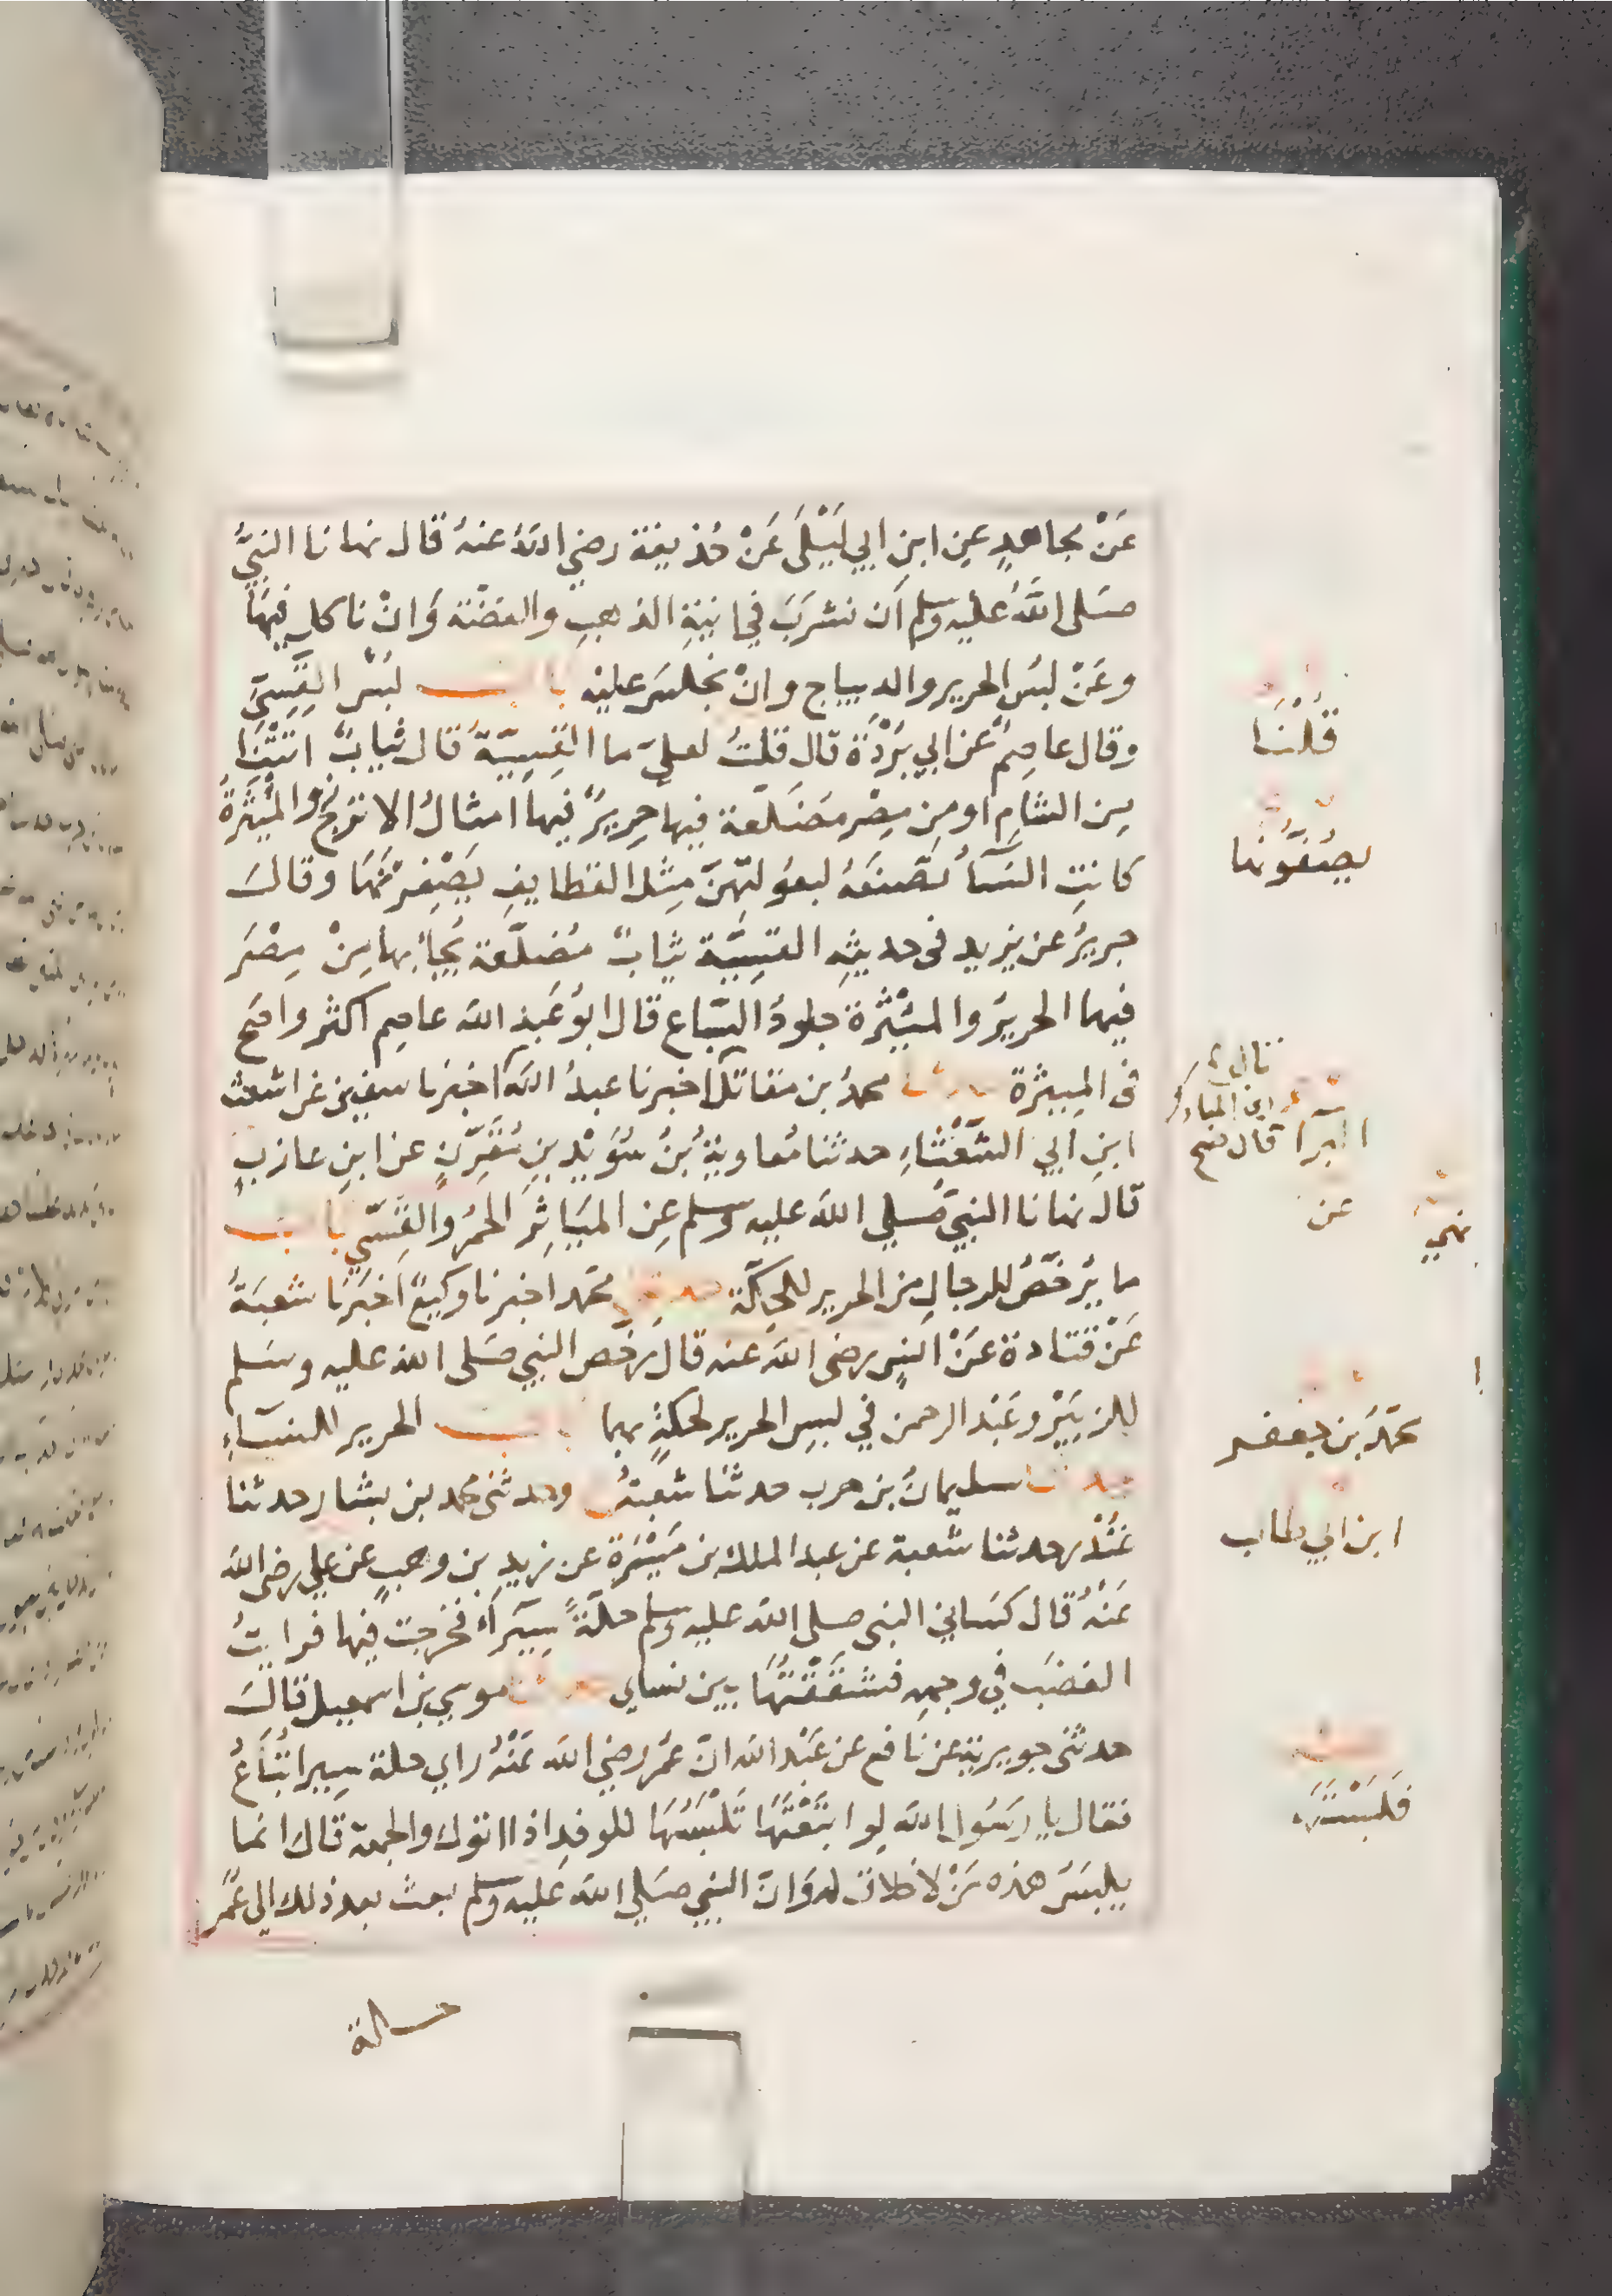 عَنْ مجاهدٍ عن ابن ابي لَيْلَى عَنْ حُذيفة رضي الله عنهُ قال نهانا النبيُّ
صَلى اللهُ عليه وسلم اَن نشربَ في انيةِ الذهبِ والفضّة وَانْ ناكل فيهَا
وعَنْ لبس الحرير والديباج وانْ نجلسَ عليْه باب لبْس القَسِيّ
وقال عاصِمٌ عن ابي بُرْدَة قال قلتُ لعليّ ما القَسِيّةُ قال ثيابٌ اتتْنَا
مِن الشامِ او مِن مِصْر مضلّعة فيها حريرٌ فيها امثالُ الاترنج والمِيْثَرةُ
كانتِ النسَآءُ تصْنعهُ لبعُولتهنّ مِثل القطايفِ يصْفِرْنهَا وقالَ
جريرٌ عن يزيد فى حديثهِ القَسِيّة ثيابٌ مُضلّعة يُجاءُ بها مِنْ مِصْرَ
فيها الحريرُ والميْثَرة جلودُ السّباع قال ابُو عَبْد الله عاصِم اكثر واصَح
فى الميثرة حدثنا محمدُ بن مقاتل اخبرنا عبدُ الله اخبرنا سفين عن اشعث
ابنِ ابي الشّعْثاءِ حدثنا مُعاويةُ بنُ سُوَيْدِ بنِ مُقَرِّنٍ عن ابنِ عازبٍ
قال نهانا النبي صَلي الله عليه وسلم عن المَيَاثِر الحُمْر والقَسّي باب
ما يُرخّصُ للرجالِ من الحرير للحِكّة حدثني محمد اخبرنا وكيعٌ اَخبرنا شعبَةُ
عَنْ قتادة عَنْ انسٍ رضى الله عنه قال رخّص النبي صَلى الله عليه وسَلم
للزبَيْر وعَبْد الرحمن في لبسِ الحرير لحكّةٍ بهما باب الحرير للنسَآءِ
حدثنا سليمانُ بن حرب حدثنا شعبةُ وحدثنى محمد بن بشار حدثنا
غُنْدر حدثنا شعبة عن عبد الملك بن مَيْسَرَة عن زيد بن وهبٍ عن علي رضى الله
عَنْهُ قال كسَاني النبى صلى الله عليه وسلم حلةً سِيَرَآءَ فخرجت فيها فرايتُ
الغضبَ في وجهه فشقَقْتُهَا بين نساى حدثنا موسي بن اسمعيل قالَ
حدثنى جويرية عن نافع عن عَبْد الله انّ عمَر رضي الله عَنْهُ راي حلة سِيرا تُبَاعُ
فقال يا رسُول الله لو ابتَعْتَهَا تَلْبَسُهَا للوفد اذا اتوك والجمعة قال انما
يلبسُ هذه مَنْ لا خلاق له وَانّ النبي صَلي الله عَليه وسلم بعث بعد ذلك الي عُمَر
حلة
قُلْنَا
يصُفّونها
ابن المبارك
البرا قال
عن
نهي
محمّدُ بن جعفر
ابن ابي طالب
فَلَبِسْتَهَا